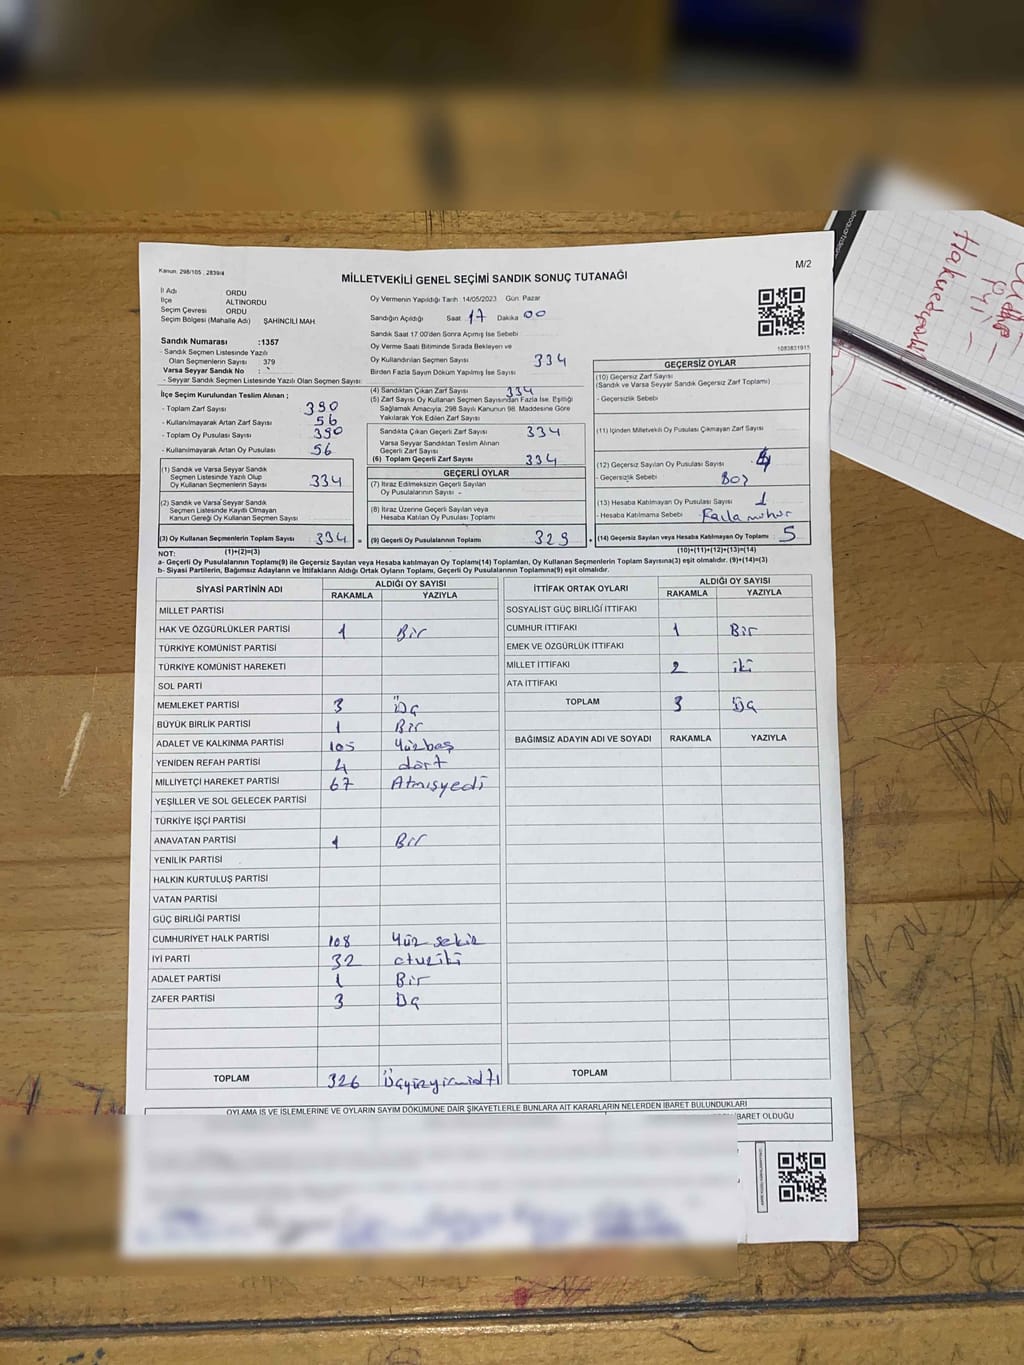 Kanun: 298/105, 2839/4
M/2
MİLLETVEKİLİ GENEL SEÇİMİ SANDIK SONUÇ TUTANAĞI
İl Adı ORDU
İlçe ALTINORDU
Seçim Çevresi ORDU
Seçim Bölgesi (Mahalle Adı) ŞAHİNCİLİ MAH.
Sandık Numarası :1357
- Sandık Seçmen Listesinde Yazılı
Olan Seçmenlerin Sayısı : 379
Varsa Seyyar Sandık No : -
- Seyyar Sandık Seçmen Listesinde Yazılı Olan Seçmen Sayısı:
İlçe Seçim Kurulundan Teslim Alınan ;
- Toplam Zarf Sayısı 390
- Kullanılmayarak Artan Zarf Sayısı 56
- Toplam Oy Pusulası Sayısı 390
- Kullanılmayarak Artan Oy Pusulası 56
(1) Sandık ve Varsa Seyyar Sandık
Seçmen Listesinde Yazılı Olup
Oy Kullanan Seçmen Sayısı 334
(2) Sandık ve Varsa Seyyar Sandık
Seçmen Listesinde Kayıtlı Olmayan
Kanun Gereği Oy Kullanan Seçmen Sayısı
(3) Oy Kullanan Seçmenlerin Toplam Sayısı 334 =
Oy Vermenin Yapıldığı Tarih :14/05/2023 Gün: Pazar
Sandığın Açıldığı Saat 17 Dakika 00
Sandık Saat 17:00'den Sonra Açımış İse Sebebi
Oy Verme Saati Bitiminde Sırada Bekleyen ve
Oy Kullandırılan Seçmen Sayısı 334
Birden Fazla Sayım Döküm Yapılmış İse Sayısı
(4) Sandıktan Çıkan Zarf Sayısı 334
(5) Zarf Sayısı Oy Kullanan Seçmen Sayısından Fazla İse, Eşitliği
Sağlamak Amacıyla, 298 Sayılı Kanunun 98. Maddesine Göre
Yakılarak Yok Edilen Zarf Sayısı
Sandıkta Çıkan Geçerli Zarf Sayısı 334
Varsa Seyyar Sandıktan Teslim Alınan
Geçerli Zarf Sayısı
(6) Toplam Geçerli Zarf Sayısı 334
GEÇERLİ OYLAR
(7) İtiraz Edilmeksizin Geçerli Sayılan
Oy Pusulalarının Sayısı -
(8) İtiraz Üzerine Geçerli Sayılan veya
Hesaba Katılan Oy Pusulası Toplamı
(9) Geçerli Oy Pusulalarının Toplamı 329 +
1083831915
GEÇERSİZ OYLAR
(10) Geçersiz Zarf Sayısı
(Sandık ve Varsa Seyyar Sandık Geçersiz Zarf Toplamı)
- Geçersizlik Sebebi
(11) İçinden Milletvekili Oy Pusulası Çıkmayan Zarf Sayısı
(12) Geçersiz Sayılan Oy Pusulası Sayısı 4
- Geçersizlik Sebebi Boş
(13) Hesaba Katılmayan Oy Pusulası Sayısı 1
- Hesaba Katılmama Sebebi Fazla mühür
(14) Geçersiz Sayılan veya Hesaba Katılmayan Oy Toplamı 5
NOT: (1)+(2)=(3) (10)+(11)+(12)+(13)=(14)
a- Geçerli Oy Pusulalarının Toplamı(9) ile Geçersiz Sayılan veya Hesaba katılmayan Oy Toplamı(14) Toplamları, Oy Kullanan Seçmenlerin Toplam Sayısına(3) eşit olmalıdır. (9)+(14)=(3)
b- Siyasi Partilerin, Bağımsız Adayların ve İttifakların Aldığı Ortak Oyların Toplamı, Geçerli Oy Pusulalarının Toplamına(9) eşit olmalıdır.
SİYASİ PARTİNİN ADI ALDIĞI OY SAYISI
RAKAMLA YAZIYLA
MİLLET PARTİSİ
HAK VE ÖZGÜRLÜKLER PARTİSİ 1 Bir
TÜRKİYE KOMÜNİST PARTİSİ
TÜRKİYE KOMÜNİST HAREKETİ
SOL PARTİ
MEMLEKET PARTİSİ 3 Üç
BÜYÜK BİRLİK PARTİSİ 1 Bir
ADALET VE KALKINMA PARTİSİ 105 Yüzbeş
YENİDEN REFAH PARTİSİ 4 dört
MİLLİYETÇİ HAREKET PARTİSİ 67 Atmışyedi
YEŞİLLER VE SOL GELECEK PARTİSİ
TÜRKİYE İŞÇİ PARTİSİ
ANAVATAN PARTİSİ 1 Bir
YENİLİK PARTİSİ
HALKIN KURTULUŞ PARTİSİ
VATAN PARTİSİ
GÜÇ BİRLİĞİ PARTİSİ
CUMHURİYET HALK PARTİSİ 108 Yüz sekiz
İYİ PARTİ 32 otuziki
ADALET PARTİSİ 1 Bir
ZAFER PARTİSİ 3 Üç
TOPLAM 326 Üçyüzyirmialtı
İTTİFAK ORTAK OYLARI ALDIĞI OY SAYISI
RAKAMLA YAZIYLA
SOSYALİST GÜÇ BİRLİĞİ İTTİFAKI
CUMHUR İTTİFAKI 1 Bir
EMEK VE ÖZGÜRLÜK İTTİFAKI
MİLLET İTTİFAKI 2 iki
ATA İTTİFAKI
TOPLAM 3 Üç
BAĞIMSIZ ADAYIN ADI VE SOYADI RAKAMLA YAZIYLA
TOPLAM
OYLAMA İŞ VE İŞLEMLERİNE VE OYLARIN SAYIM DÖKÜMÜNE DAİR ŞİKAYETLERLE BUNLARA AİT KARARLARIN NELERDEN İBARET BULUNDUKLARI
İBARET OLDUĞU